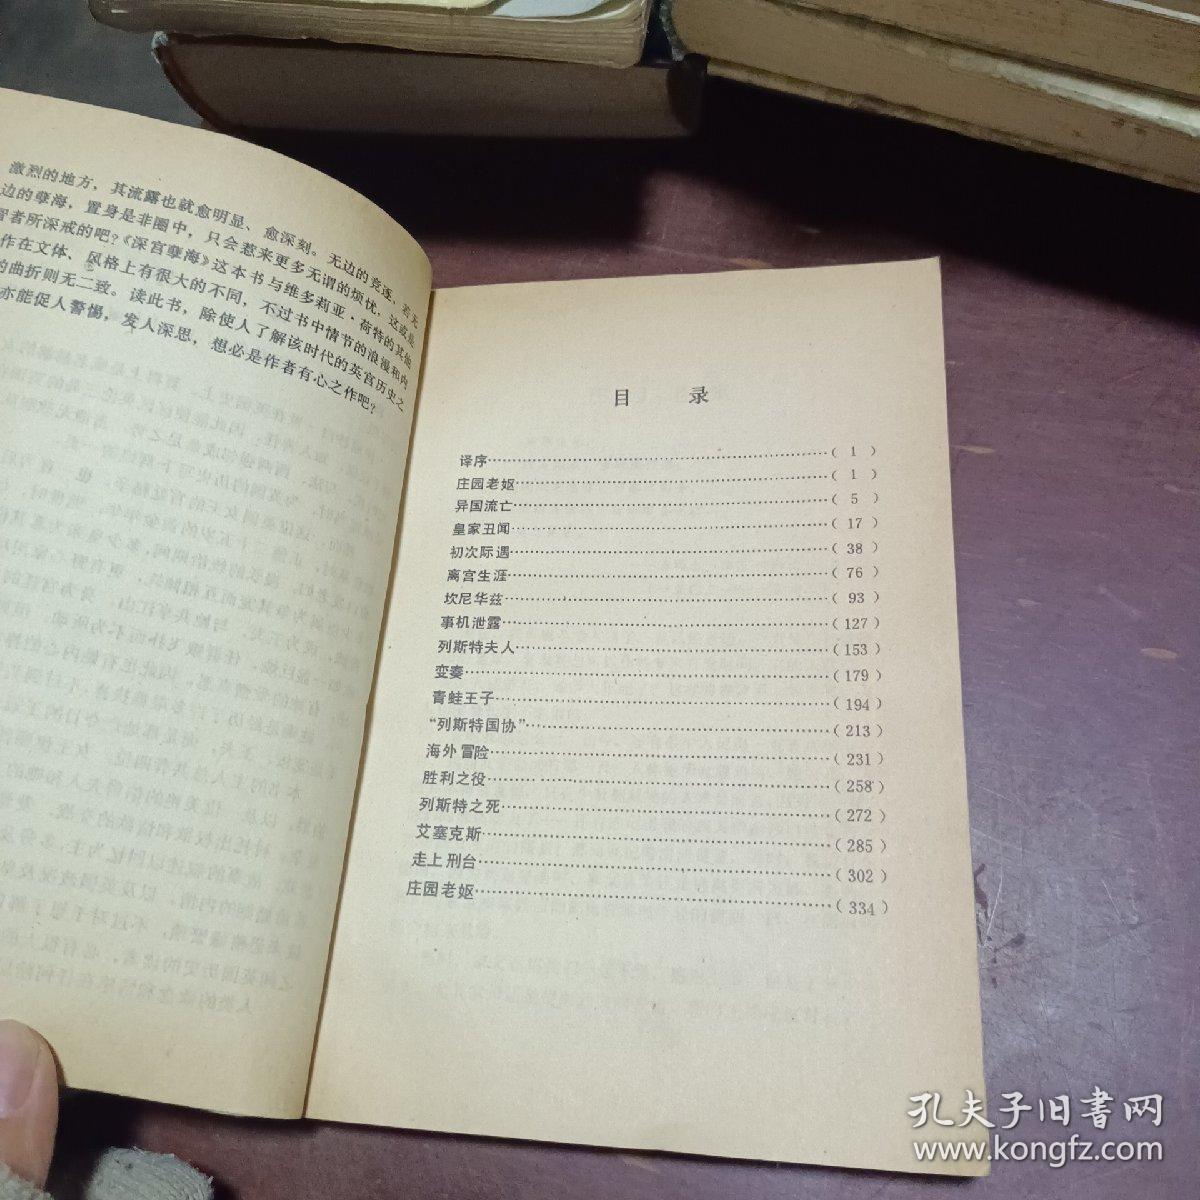 激烈的地方，其流露也就愈明显、愈深刻。无边的竞逐，若无
边的孽海，置身是非圈中，只会惹来更多无谓的烦忧，这或是
智者所深戒的吧？《深宫孽海》这本书与维多莉亚·荷特的其他
作在文体、风格上有很大的不同，不过书中情节的浪漫和内
的曲折则无二致。读此书，除使人了解该时代的英宫历史之
亦能促人警惕，发人深思，想必是作者有心之作吧？
目 录
译序……（ 1 ）
庄园老妪……（ 1 ）
异国流亡……（ 5 ）
皇家丑闻……（ 17 ）
初次际遇……（ 38 ）
离宫生涯……（ 76 ）
坎尼华兹……（ 93 ）
事机泄露……（127）
列斯特夫人……（153）
变奏……（179）
青蛙王子……（194）
“列斯特国协”……（213）
海外冒险……（231）
胜利之役……（258）
列斯特之死……（272）
艾塞克斯……（285）
走上刑台……（302）
庄园老妪……（334）
孔夫子旧书网
www.kongfz.com